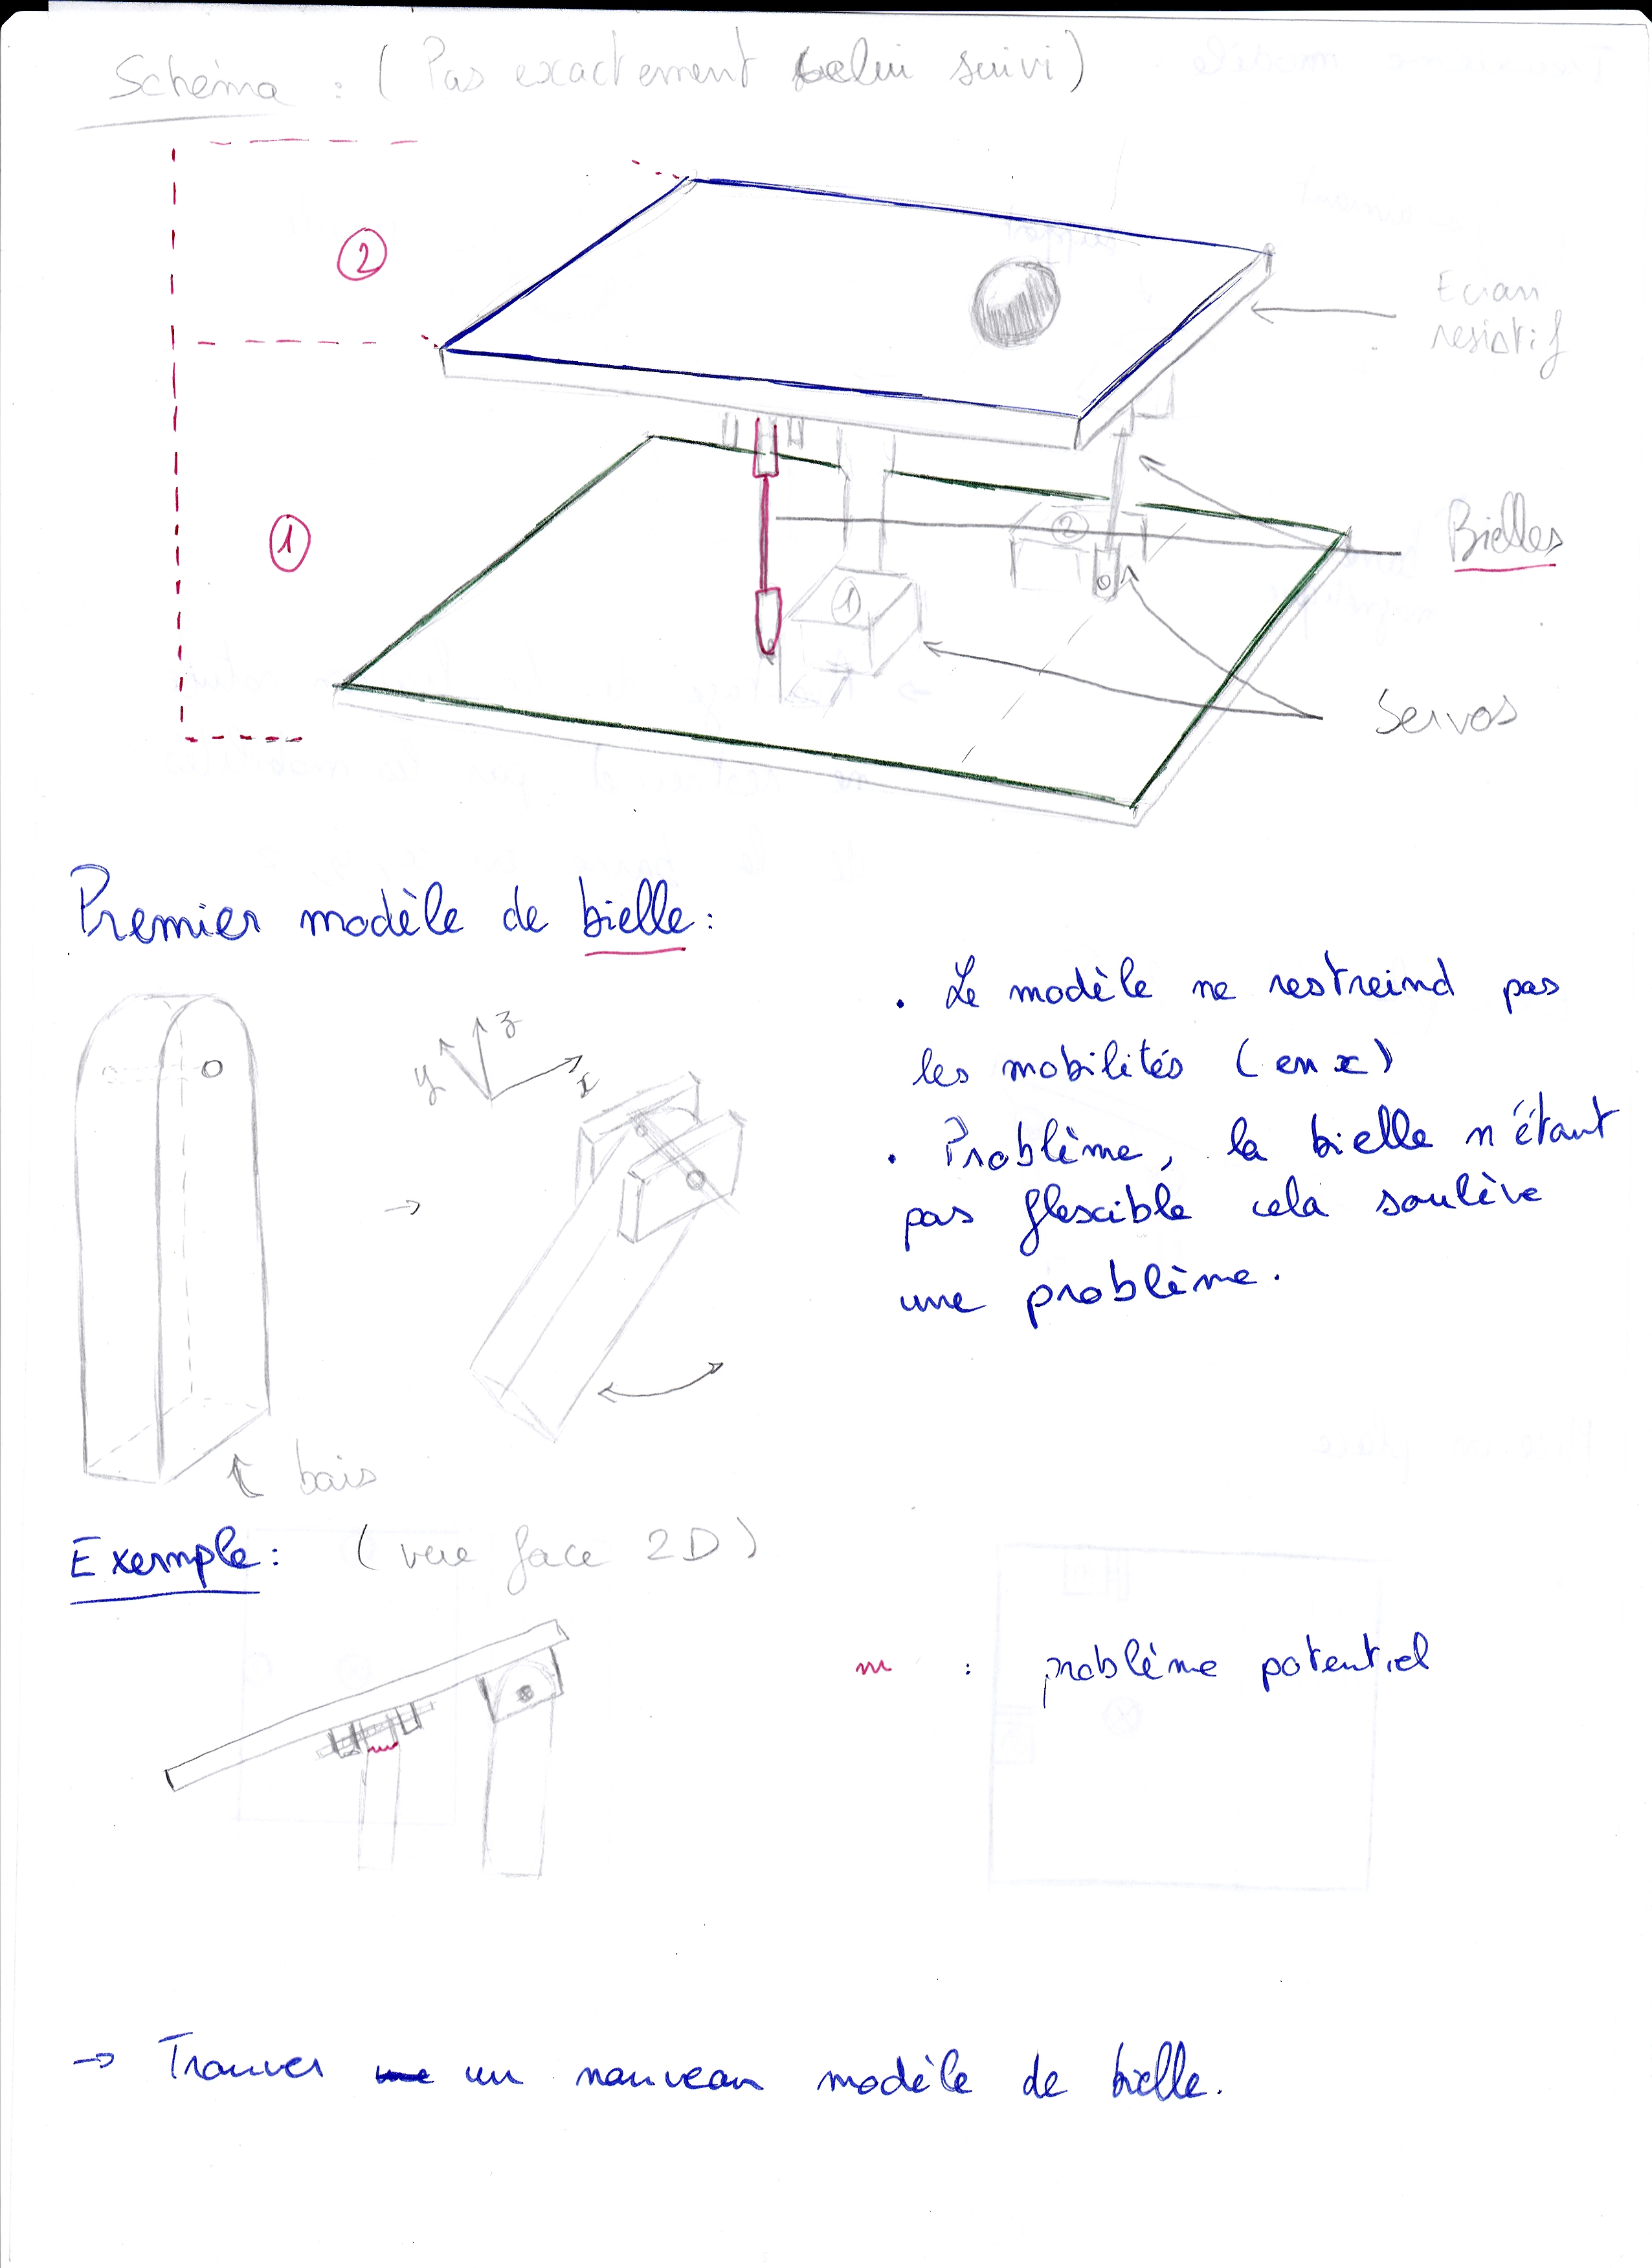 Schéma : (Pas exactement celui suivi)
②
Ecran
resistif
①
②
Bielles
①
Servos
Premier modèle de bielle :
. Le modèle ne restreind pas
les mobilités (en x)
. Problème, la bielle n'étant
pas flexcible cela soulève
une problème.
z
y
x
→
bois
Exemple : (vue face 2D)
: problème potentiel
→ Trouver un nouveau modèle de bielle.